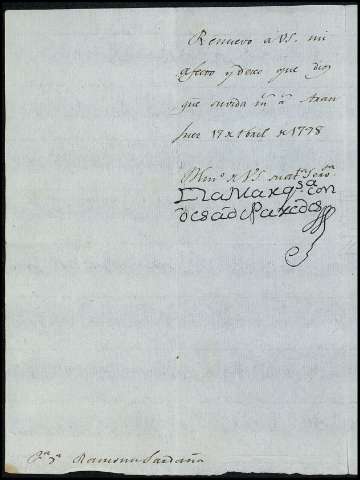 Renuevo a VS. mi
afecto y deseo que Dios
que su vida m.s a.s Aran
juez 17 de Abril de 1778
B.l.m.o de V.S. su at.ta
La Marq.sa con
desa de Paredes
S.ra D.a Ramona